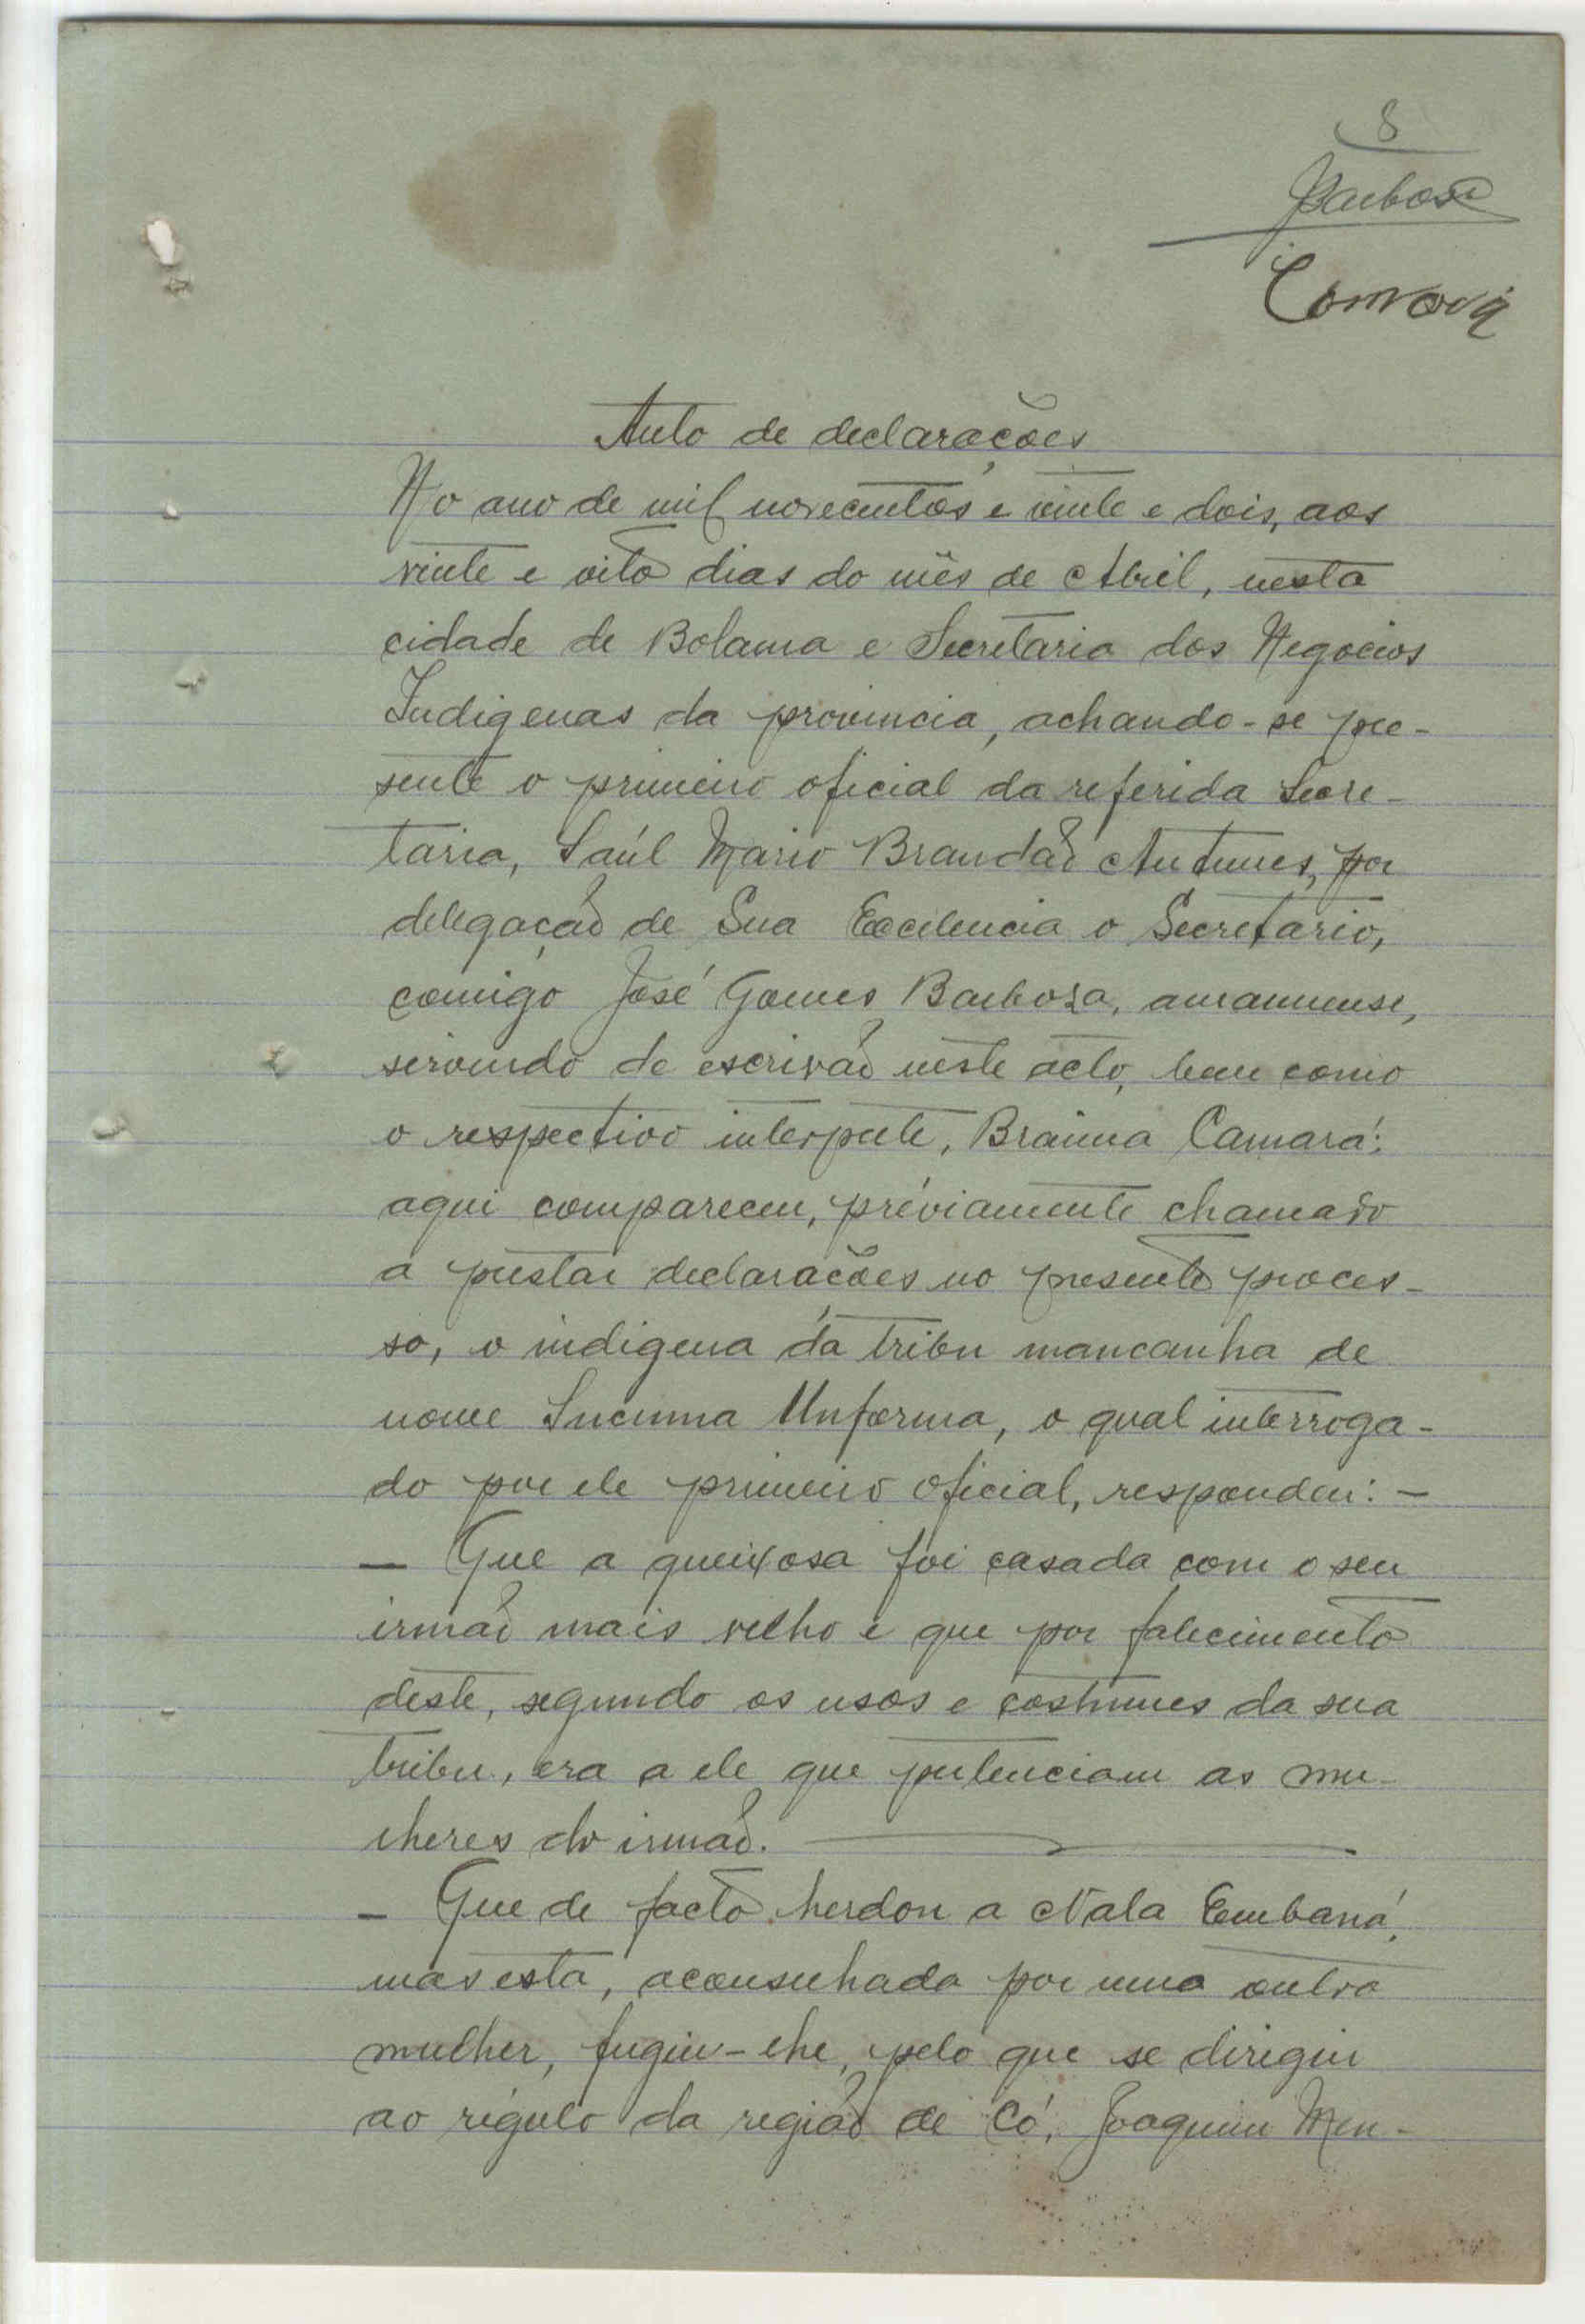 8
Barbosa
Auto de declarações
No ano de mil novecentos e vinte e dois, aos
vinte e oito dias do mês de Abril, nesta
cidade de Bolama e Secretaria dos Negocios
Indigenas da provincia, achando-se pre-
sente o primeiro oficial da referida Secre-
taria, Saúl Mario Brandão Antunes, por
delegação de Sua Excelencia o Secretario,
comigo José Gomes Barbosa, amanuense,
servindo de escrivão nêste acto, bem como
o respectivo interpete, Braima Camará:
aqui compareceu, préviamente chamado
a prestar declarações no presente proces-
so, o indigena da tribu mancanha de
nome Sucuma Unforma, o qual interroga-
do por ele primeiro oficial, respondeu: -
- Que a queixosa foi casada com o seu
irmão mais velho e que por falecimento
dêste, segundo os usos e costumes da sua
tribu, era a ele que pertenciam as mu-
lheres do irmão.
- Que de facto herdou a Nala Embaná,
mas esta, aconselhada por uma outra
mulher, fugiu-lhe, pelo que se dirigiu
ao régulo da região de Có, Joaquim Men-